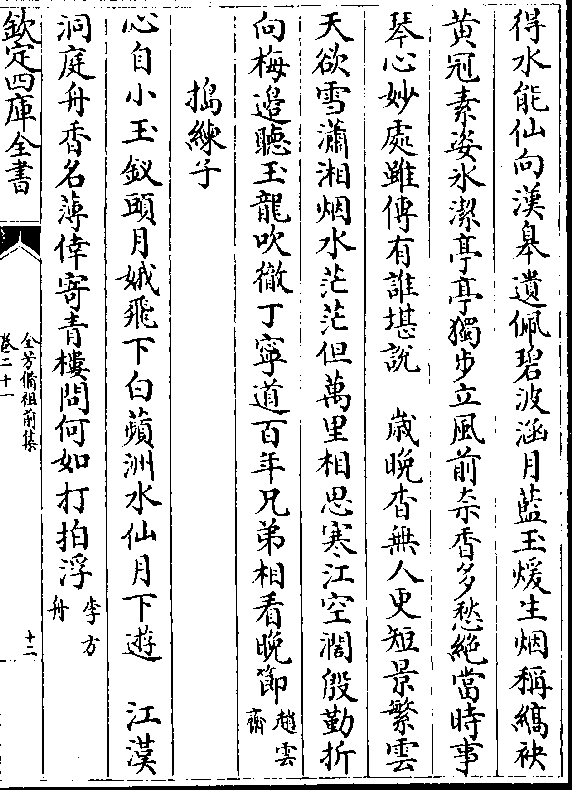 得水能仙向漢皋遺佩碧波涵月藍玉煖生烟稱縞袂
黄冠素姿氷潔亭亭獨步立風前奈香多愁絶當時事
琴心妙處雖傳有誰堪說　歲晚杳無人更短景繁雲
天欲雪瀟湘烟水茫茫但萬里相思寒江空濶殷勤折
向梅邉聽玉龍吹徹丁寧道百年兄弟相看晚節趙雲齋
搗練子
心自小玉釵頭月娥飛下白蘋洲水仙月下遊　江漢
洞庭舟香名薄倖寄青樓問何如打拍浮李方舟
欽定四庫全書
全芳備祖前集
卷二十一
十二